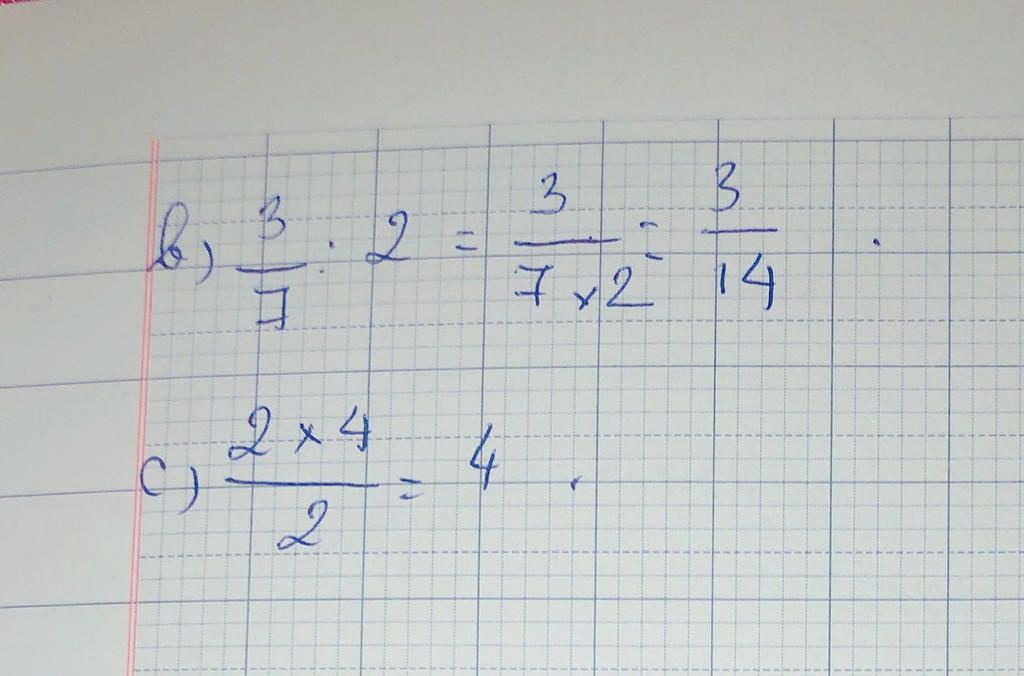 b) 3/7 : 2 = 3/(7 × 2) = 3/14 .
c) (2 × 4)/2 = 4 .